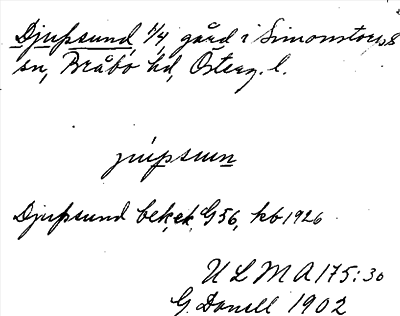 Djupsund 1/4, gård i Simonstorps
sn, Bråbo hd, Österg. l.
jùpsun
Djupsund bek, ek, G56, kb 1926
ULMA 175:30
G. Danell 1902